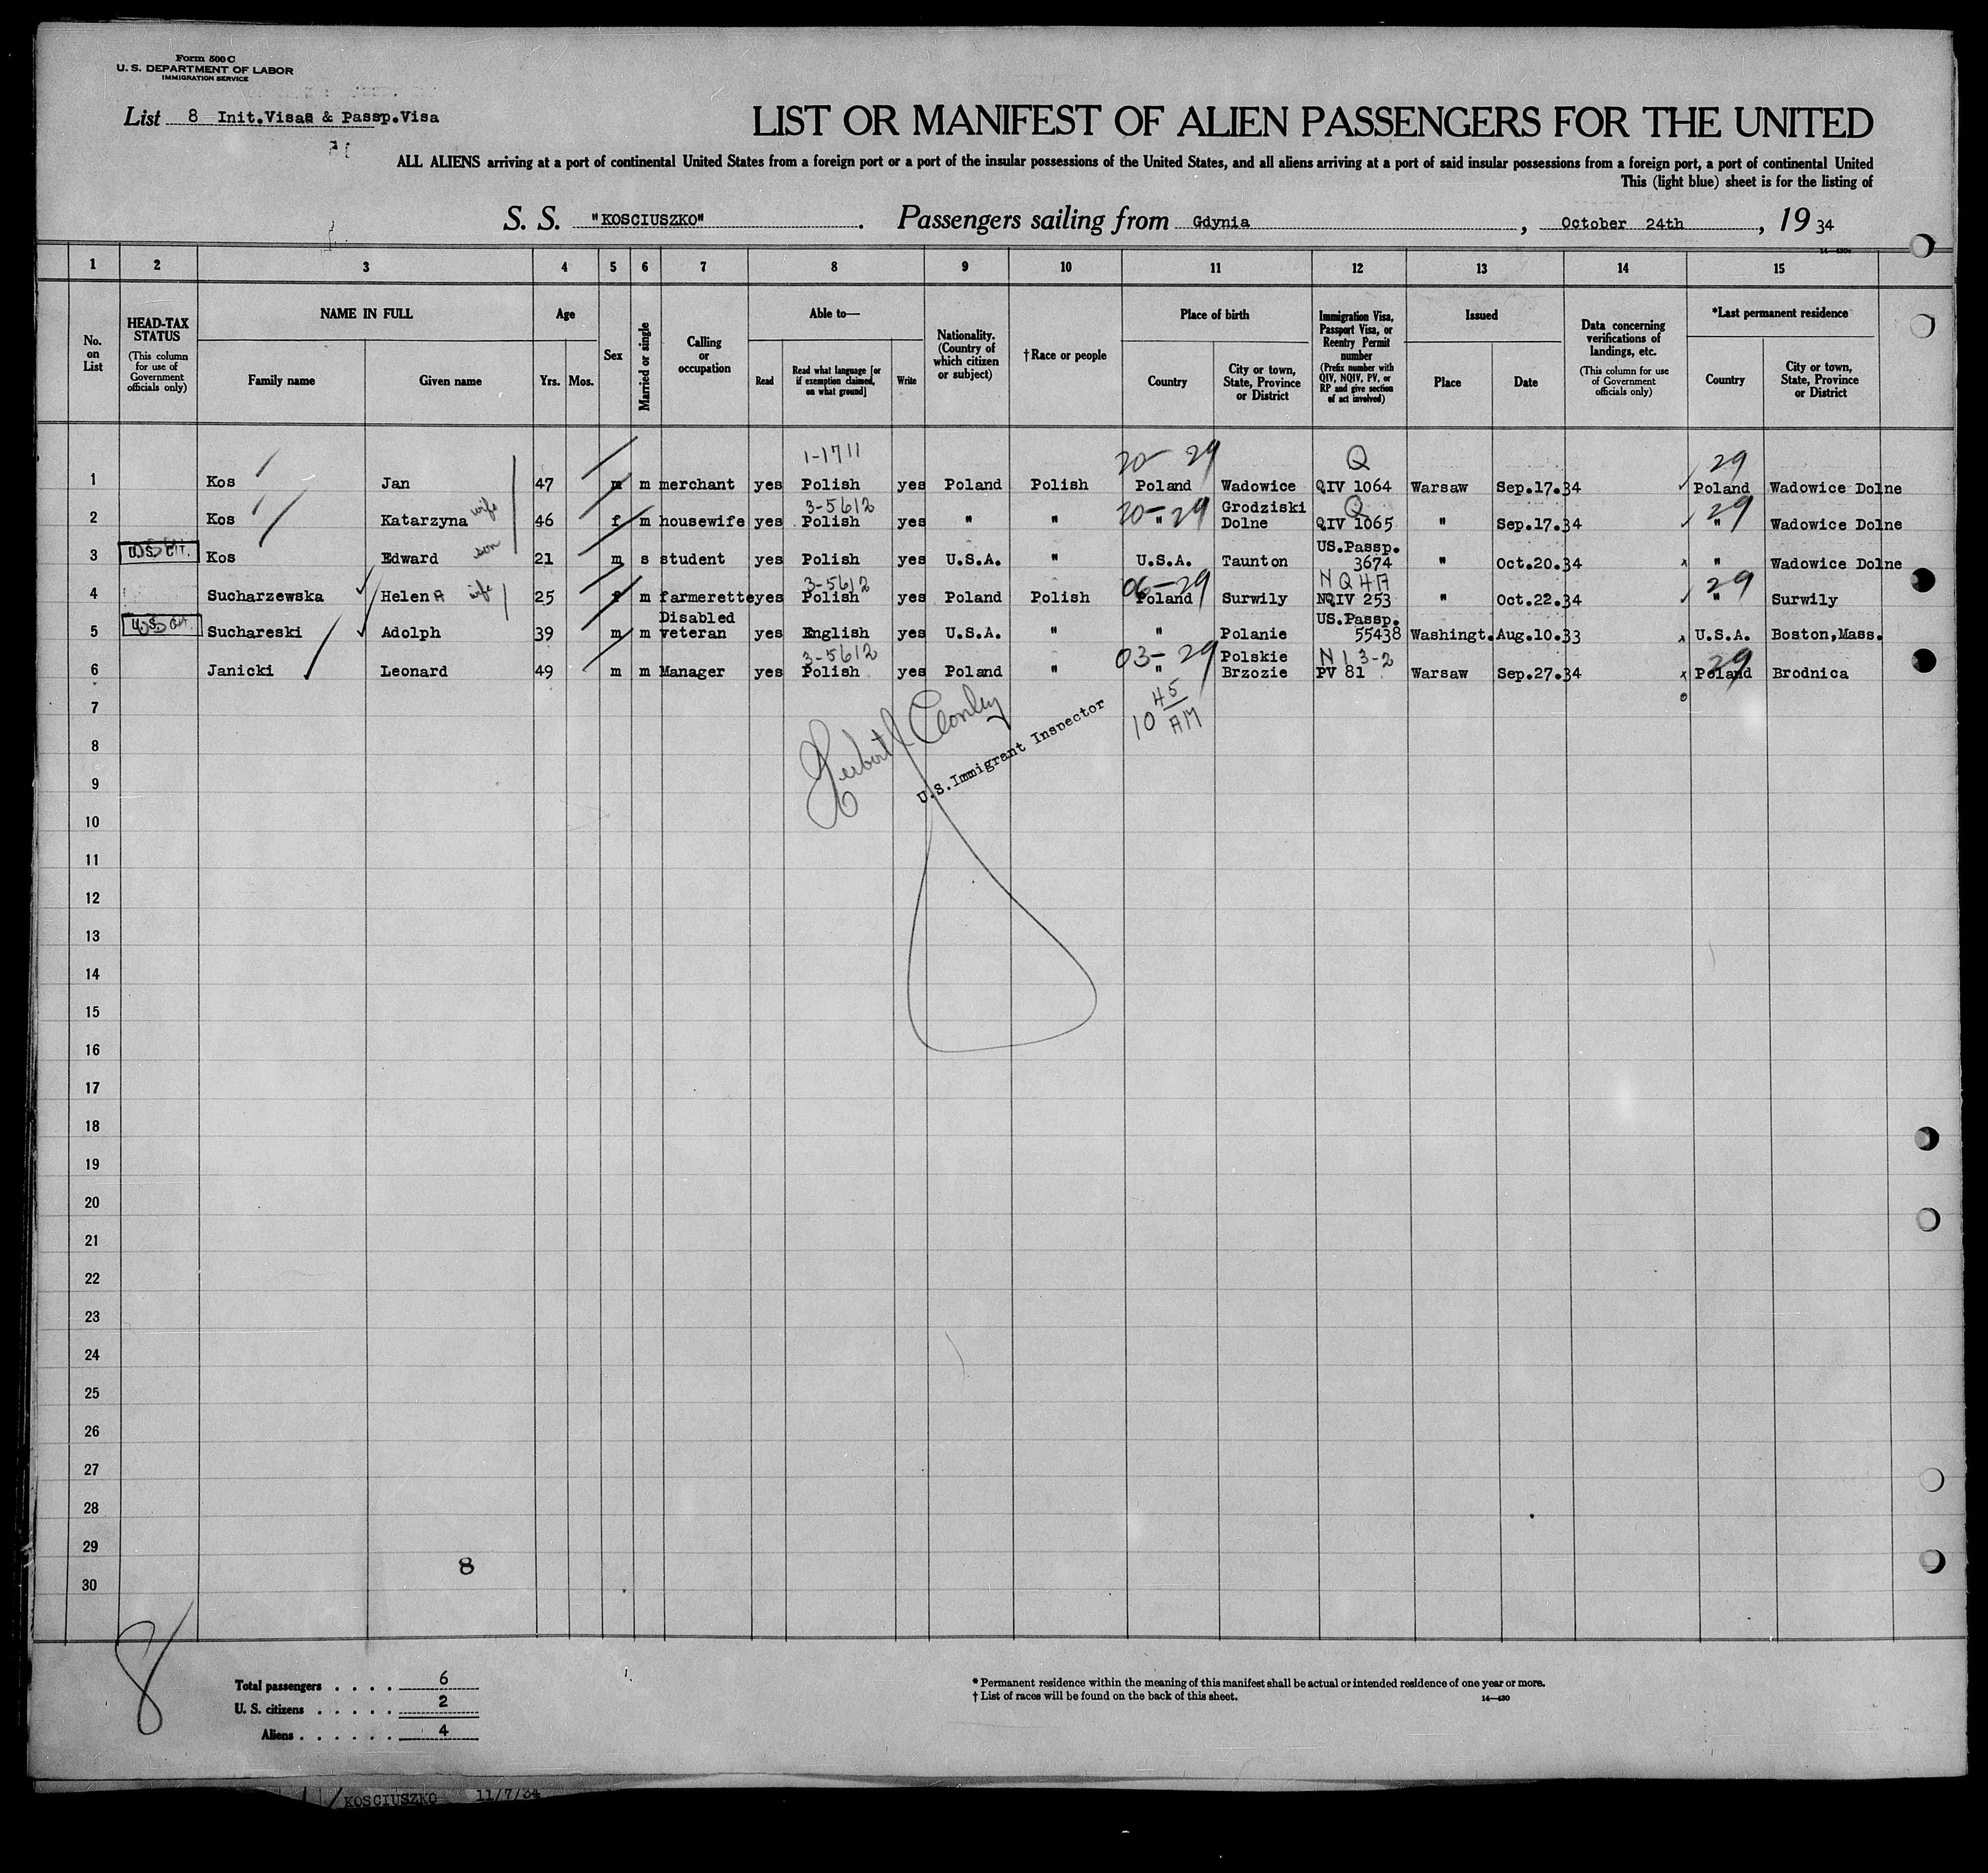 Form 500 C
U. S. DEPARTMENT OF LABOR
IMMIGRATION SERVICE
List 8 Init.Visas & Passp.Visa
LIST OR MANIFEST OF ALIEN PASSENGERS FOR THE UNITED
ALL ALIENS arriving at a port of continental United States from a foreign port or a port of the insular possessions of the United States, and all aliens arriving at a port of said insular possessions from a foreign port, a port of continental United
This (light blue) sheet is for the listing of
S. S. "KOSCIUSZKO". Passengers sailing from Gdynia, October 24th, 19 34
1 2 3 4 5 6 7 8 9 10 11 12 13 14 15
No. on List
HEAD-TAX STATUS (This column for use of Government officials only)
NAME IN FULL
Family name Given name
Age
Yrs. Mos.
Sex
Married or single
Calling or occupation
Able to—
Read Read what language [or if exemption claimed, on what ground] Write
Nationality. (Country of which citizen or subject)
†Race or people
Place of birth
Country City or town, State, Province or District
Immigration Visa, Passport Visa, or Reentry Permit number (Prefix number with QIV, NQIV, PV, or RP and give section of act involved)
Issued
Place Date
Data concerning verifications of landings, etc. (This column for use of Government officials only)
*Last permanent residence
Country City or town, State, Province or District
1-1711 20- 29 Q 29
1 Kos Jan 47 m m merchant yes Polish yes Poland Polish Poland Wadowice QIV 1064 Warsaw Sep.17.34 Poland Wadowice Dolne
3-5612 20-29 Q 29
2 Kos Katarzyna wife 46 f m housewife yes Polish yes " " " Grodziski Dolne QIV 1065 " Sep.17.34 " Wadowice Dolne
3 U.S. CIT. Kos Edward son 21 m s student yes Polish yes U.S.A. " U.S.A. Taunton US.Passp. 3674 " Oct.20.34 " Wadowice Dolne
3-5612 06-29 N Q 4 A 29
4 Sucharzewska Helen A wife 25 f m farmerette yes Polish yes Poland Polish Poland Surwily NQIV 253 " Oct.22.34 " Surwily
5 U.S. Cit. Suchareski Adolph 39 m m Disabled veteran yes English yes U.S.A. " " Polanie US.Passp. 55438 Washingt. Aug.10.33 U.S.A. Boston,Mass.
3-5612 03-29 N 1 3-2 29
6 Janicki Leonard 49 m m Manager yes Polish yes Poland " " Polskie Brzozie PV 81 Warsaw Sep.27.34 Poland Brodnica
7
10 45 AM
U.S.Immigrant Inspector
8
9
10
11
12
13
14
15
16
17
18
19
20
21
22
23
24
25
26
27
28
29
8
30
8
Total passengers . . . . 6
U. S. citizens . . . . . . 2
Aliens . . . . . . 4
* Permanent residence within the meaning of this manifest shall be actual or intended residence of one year or more.
† List of races will be found on the back of this sheet. 14—430
KOSCIUSZKO 11/7/34